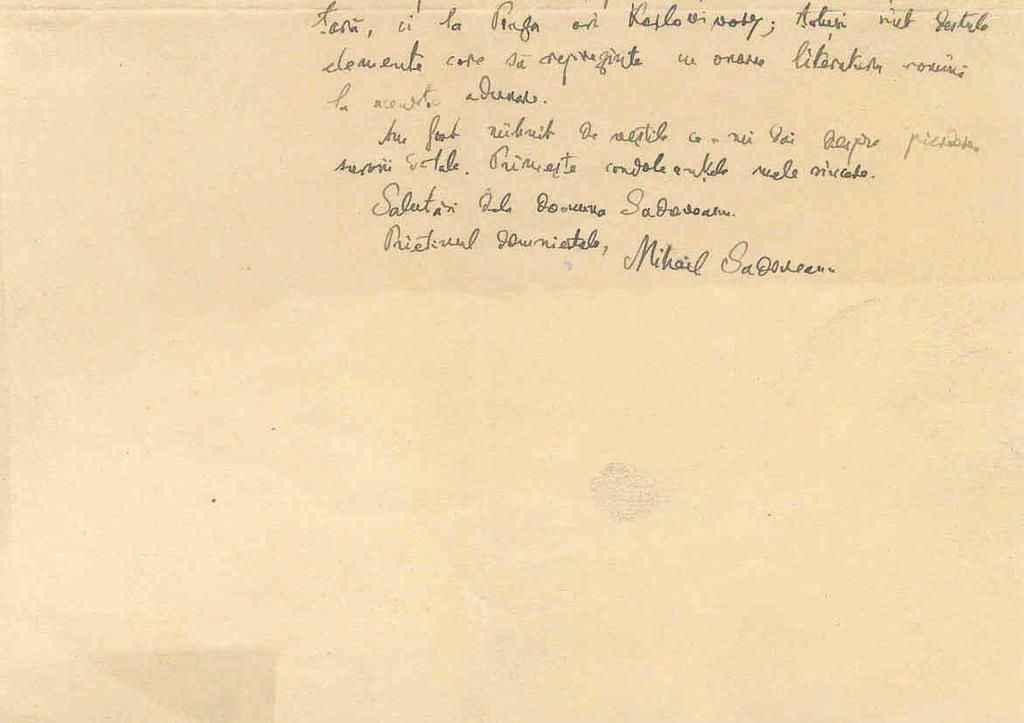 țară, ci la Praga ori Karlovivary; Astăzi sînt destule
elemente care să reprezinte cu onoare literatura romînă
la această adunare.
Am fost mîhnit de veștile ce-mi dai despre pierderea
surorii d-tale. Primește condoleanțele mele sincere.
Salutări dela doamna Sadoveanu.
Prietinul domnietale, Mihail Sadoveanu